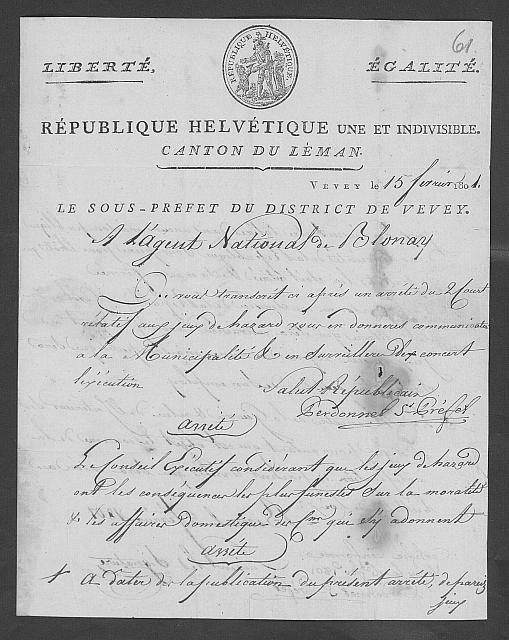 61.
RÉPUBLIQUE HELVÉTIQUE.
LIBERTÉ, ÉGALITÉ.
RÉPUBLIQUE HELVÉTIQUE UNE ET INDIVISIBLE.
CANTON DU LÉMAN.
VEVEY le 15 fevrier 1801.
LE SOUS-PREFET DU DISTRICT DE VEVEY.
A L'agent National de Blonay
Je vous transcrit ci après un arrêté du
relatif aux jeux de hazard vous en donneres
à la Municipalité & en surveilleres de concert
l'éxécution
Salut Républicain
Perdonnet Sr Préfet
arrêté
Le Conseil Exécutif considérant que les jeux de hazard
ont les conséquences les plus funestes sur la moralité
& les affaires domestique des qui s'y adonnent
arrête
A dater de la publication du présent arrêté, de pareils
jeux